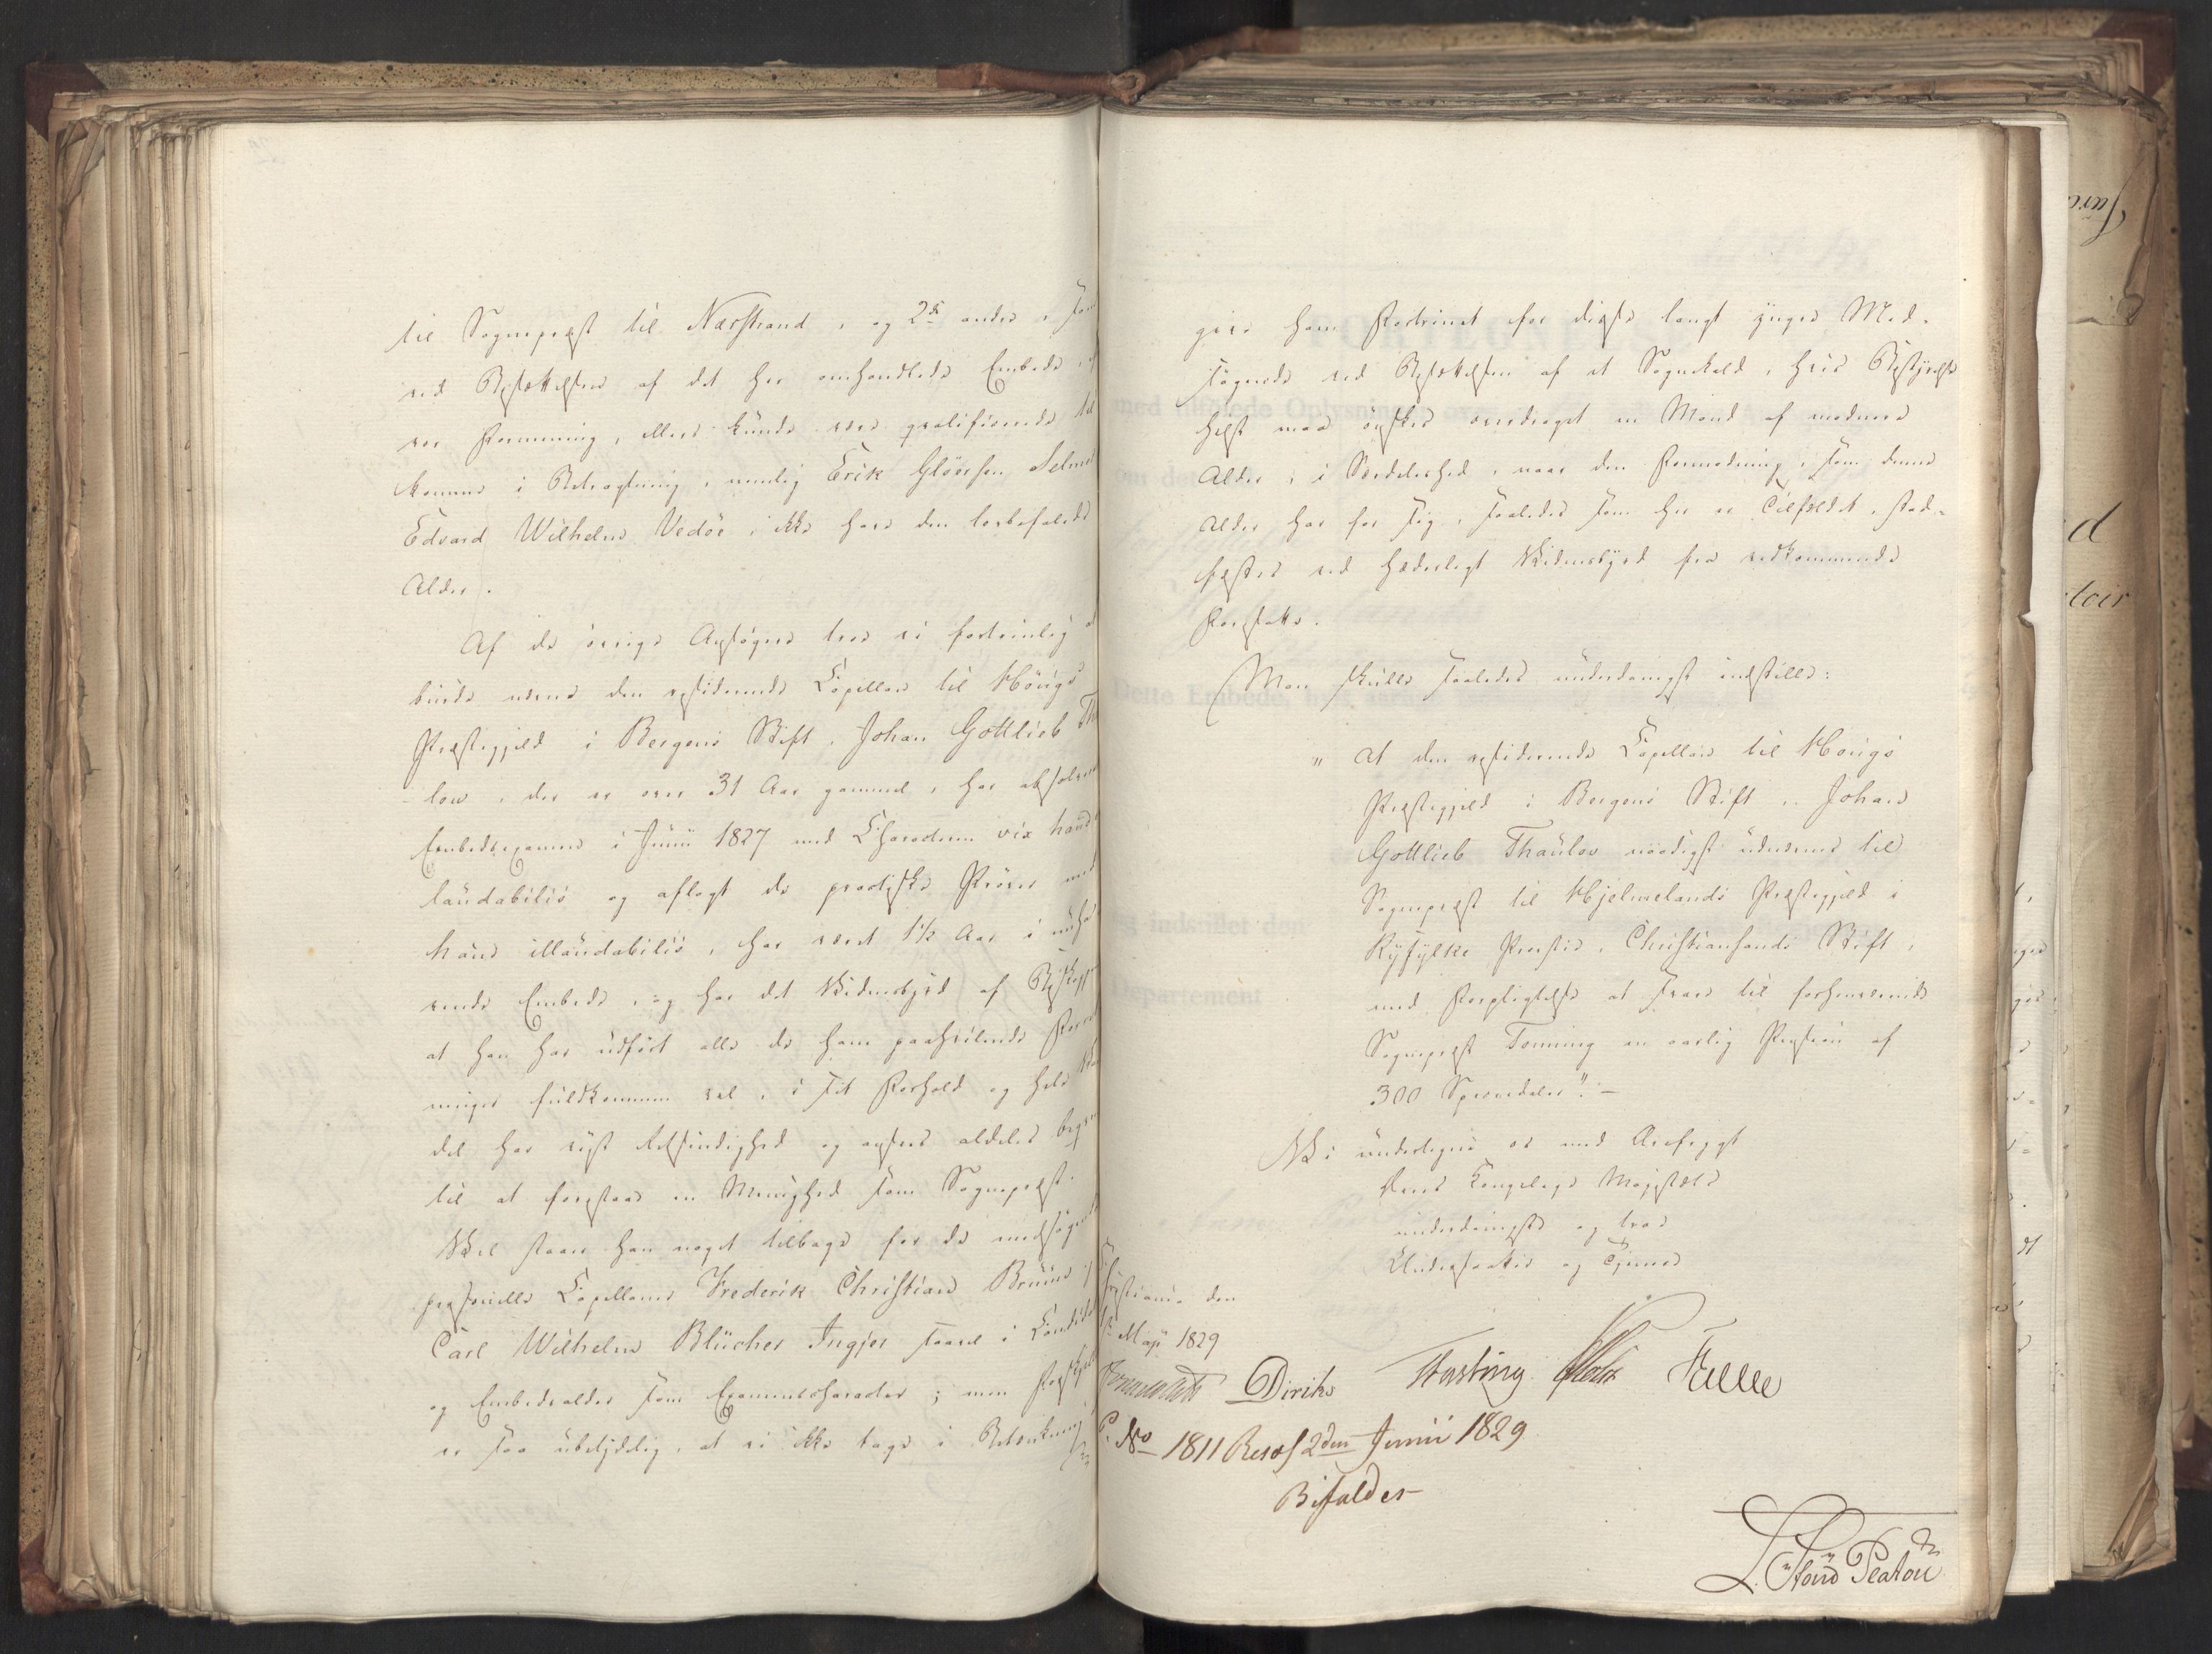 til Sognepræst til Nærstrand, og 2de andre, som
ved Besættelsen af det her omhandlede Embede, efter
vor Formening, ellers kunde være qvalificerede til at
komme i Betragtning, nemlig Erik Glöersen Selmer
Edvard Wilhelm Vedöe, ikke have den lovbefalede
Alder.
Af de övrige Ansögere troe vi fortrinlig at
burde nævne den residerende Capellan til Houigs
Præstegjeld i Bergens Stift, Johan Gottlieb Thau-
low, der er over 31 Aar gammel, har absolveret
Embedsexamen i Junii 1827 med Characteren vix haud
laudabilis og aflagt de practiske Pröver med
haud illaudabilis, har været 1½ Aar i nuhæ-
rende Embede, og har det Vidnesbyrd af Biskoppen
at han har udfört alle de ham paahvilende Forret-
ninger fuldkommen vel, i sit Forhold og hele Van-
del har viist Retsindighed og ansees aldeles beqvem
til at forestaae en Menighed som Sognepræst.
Vel staaer han noget tilbage for de medsögende
personelle Capellaner Frederik Christian Bruun og
Carl Wilhelm Blücher Ingjer saavel i Candidat
og Embedsalder som Examenscharacter; men Forskjellen
er saa ubetydelig, at vi ikke tage i Betænkning at
give ham Fortrinet for disse langt yngre Med-
sögende ved Besættelsen af et Sognekald, hvis Bestyrelse
helst maa önskes overdraget en Mand af modnere
Alder, i Særdeleshed, naar den Formodning, som denne
Alder har for sig, saaledes som her er Tilfældet, stad-
fæstes ved hæderligt Vidnesbyrd fra vedkommende
Foresatte.
Man skulle saaledes underdanigst indstille:
" At den residerende Capellan til Houigs
Præstegjeld i Bergens Stift, Johan
Gottlieb Thaulow naadigst udnævnes til
Sognepræst til Hjelmelands Præstegjeld i
Ryfylke Provstie, Christiansands Stift,
med Forpligtelse at svare til forhenværende
Sognepræst Tonning en aarlig Pension af
300 Speciedaler". —
Vi undertegne os med Ærefrygt
Deres Kongelige Majestæts
underdanigste og troe
Undersaatter og Tjenere
Christiania den
Maji 1829
Diriks
Fasting
Holst
Helle
P. No 1811 Resol 2den Junii 1829
Bifaldes